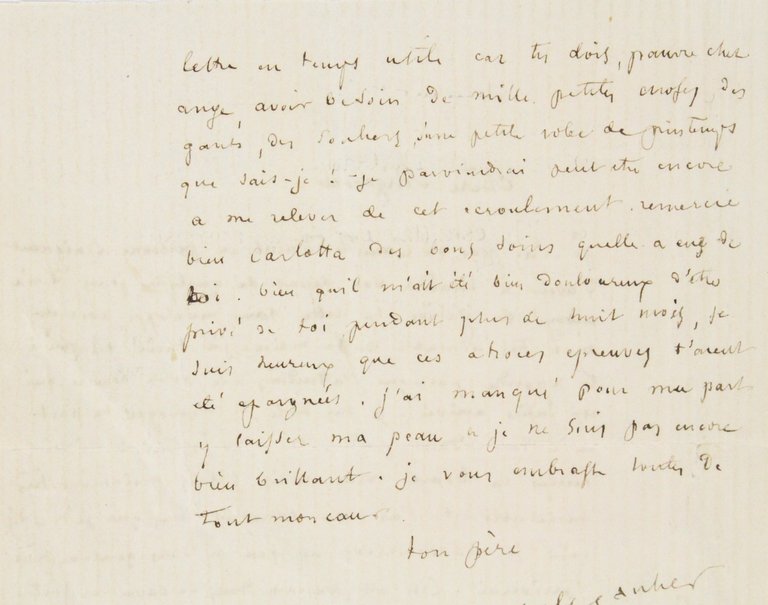 lettre en temps utile car tu dois, pauvre cher
ange, avoir besoin de mille petites choses, des
gants, des souliers, une petite robe de printemps
que sais-je! - je parviendrai peut etre encore
a me relever de cet ecroulement. remercie
bien Carlotta des bons soins quelle a eus de
toi. bien quil m'ait été bien douloureux d'etre
privé de toi pendant plus de huit mois, je
suis heureux que ces atroces epreuves t'aient
été epargnées. j'ai manqué pour ma part
y laisser ma peau et je ne suis pas encore
bien brillant. je vous embrasse toutes de
tout mon cœur.
ton père